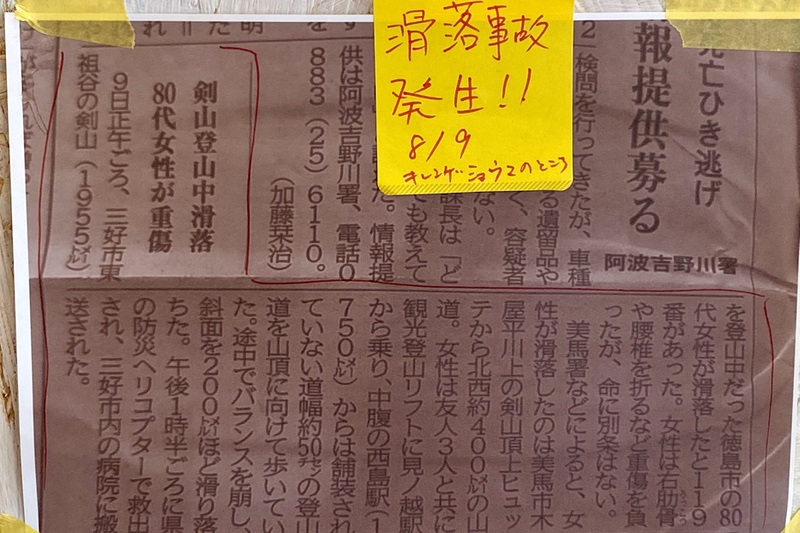 滑落事故
発生!!
8/9
キレンゲショウマのところ
亡ひき逃げ
報提供募る
阿波吉野川署
検問を行ってきたが、車種
る遺留品や
く、容疑者
ない。
課長は「ど
ても教えて
た。情報提
供は阿波吉野川署、電話0
883(25)6110。
(加藤栞治)
剣山登山中滑落
80代女性が重傷
9日正午ごろ、三好市東
祖谷の剣山(1955㍍)
を登山中だった徳島市の80
代女性が滑落したと119
番があった。女性は右肋骨
や腰椎を折るなど重傷を負
ったが、命に別条はない。
美馬署などによると、女
性が滑落したのは美馬市木
屋平川上の剣山頂上ヒュッ
テから北西約400㍍の山
道。女性は友人3人と共に
観光登山リフトに見ノ越駅
から乗り、中腹の西島駅(1
750㍍)からは舗装され
ていない道幅約50㌢の登山
道を山頂に向けて歩いてい
た。途中でバランスを崩し、
斜面を200㍍ほど滑り落
ちた。午後1時半ごろに県
の防災ヘリコプターで救出
され、三好市内の病院に搬
送された。